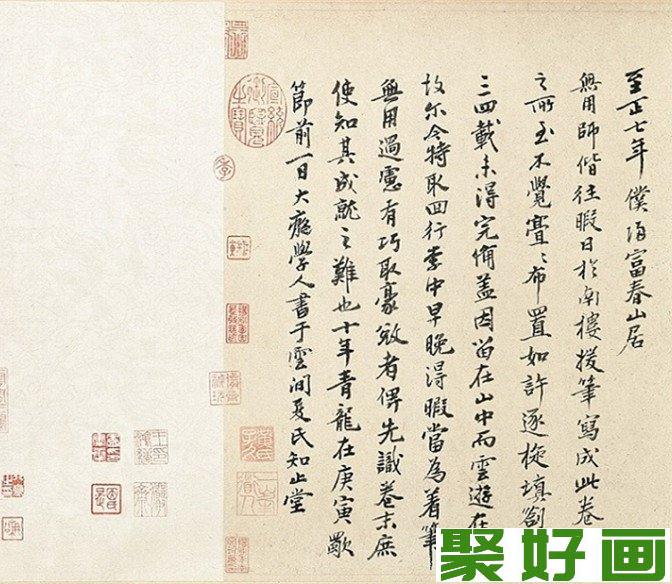 至正七年僕歸富春山居
無用師偕往暇日於南樓援筆寫成此卷興
之所至不覺亹〻布置如許逐旋填劄閱
三四載未得完備蓋因留在山中而雲遊在外
故尔今特取回行李中早晚得暇當為着筆
無用過慮有巧取豪敚者俾先識卷末庶
使知其成就之難也十年青龍在庚寅歜
節前一日大癡學人書于雲間夏氏知止堂
聚好画